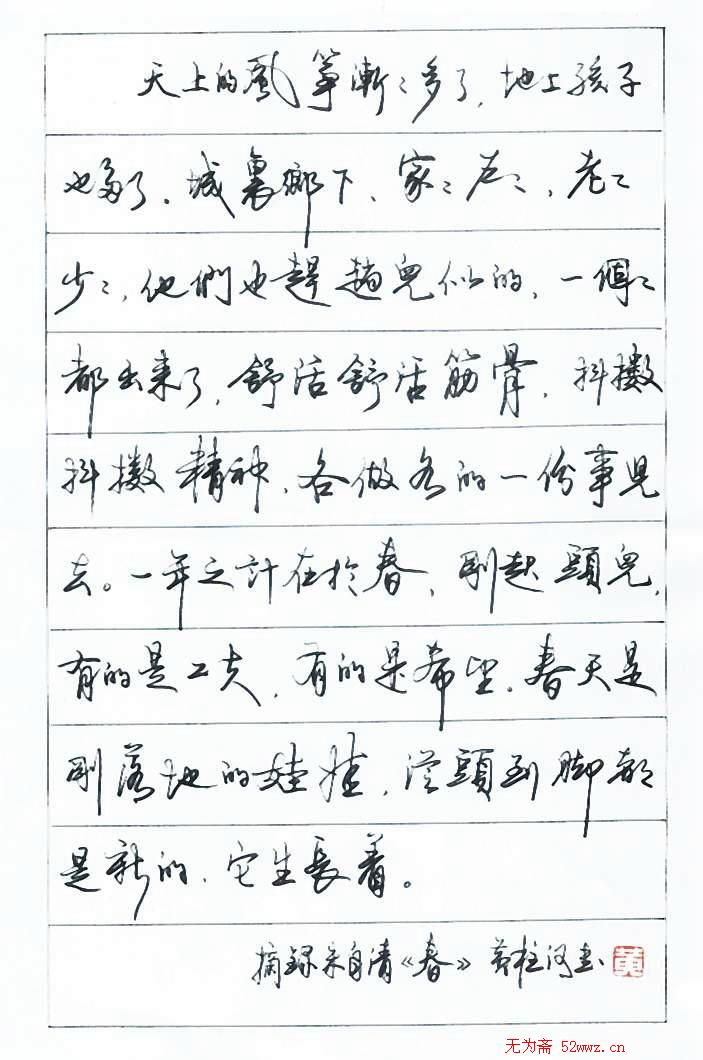 天上的風箏漸〻多了，地上孩子
也多了。城裏鄉下、家〻户〻，老〻
少〻，他們也趕趟兒似的，一個〻
都出来了，舒活舒活筋骨，抖擻
抖擻精神，各做各的一份事兒
去。一年之計在於春，剛起頭兒，
有的是工夫，有的是希望。春天是
剛落地的娃娃，從頭到脚都
是新的，它生長着。
摘録朱自清《春》 黄柱河書 黄
无为斋 52wwz.cn